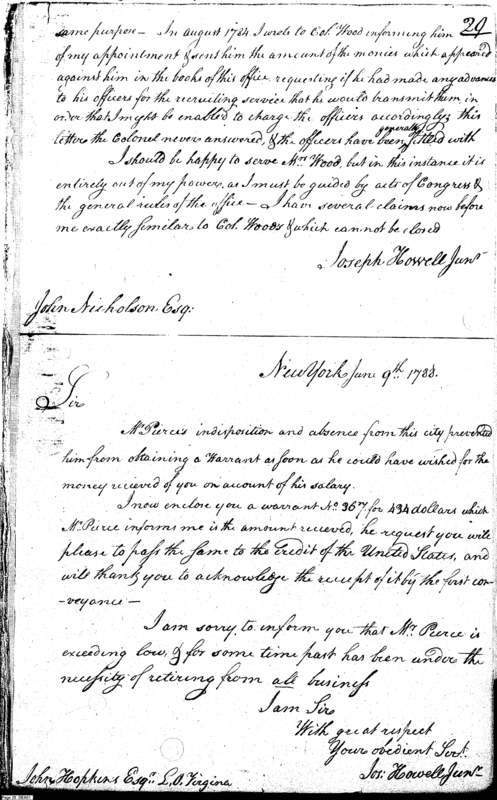 29
same purpose – In August 1784 I wrote to Col. Wood informing him
of my appointment & sent him the amount of the monies which appeared
against him in the books of this office requesting if he had made any advances
to his officers for the recruiting service that he would transmit them in
order that I might be enabled to charge the officers accordingly; this
letter the Colonel never answered, & the officers have been generally settled with
I should be happy to serve Mrs Wood but in this instance it is
entirely out of my power, as I must be guided by acts of Congress &
the general rules of the office – I have several claims now before
me exactly similar to Col. Woods & which cannot be closed
Joseph Howell Junr
John Nicholson Esq:
New York June 9th 1788.
Sir
Mr Pierce's indisposition and absence from this city prevented
him from obtaining a Warrant as soon as he could have wished for the
money recieved of you on account of his salary.
I now enclose you a warrant No 367 for 434 dollars which
Mr Pierce informs me is the amount recieved, he request you will
please to pass the same to the Credit of the United States, and
will thank you to acknowledge the receipt of it by the first con-
-veyance –
I am sorry to inform you that Mr Pierce is
exceeding low, & for some time past has been under the
necessity of retiring from all business
I am Sir
With great respect
Your obedient Sert
Jos: Howell Junr
John Hopkins Esqr L.O. Virgina